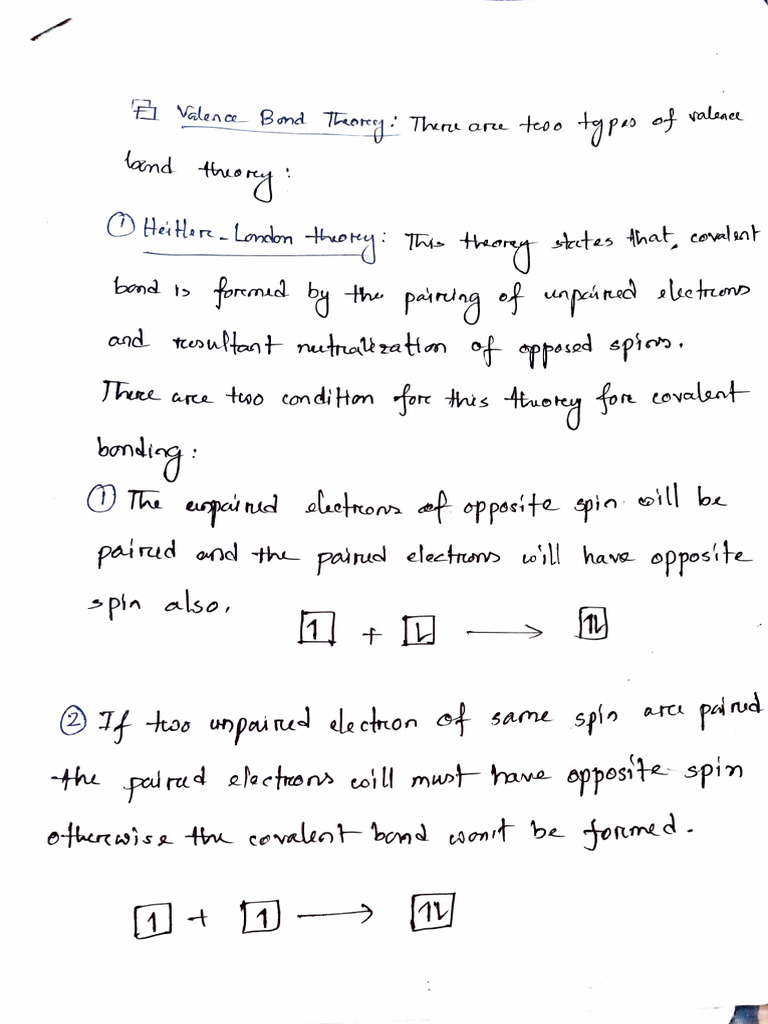 Valence Bond Theorey: There are two types of valence
bond theorey:
① Heitlere-London theorey: This theorey states that, covalent
bond is foremed by the paireing of unpaired electrons
and resultant nutralization of opposed spins.
There are two condition fore this theorey fore covalent
bonding:
① The unpaired electrons of opposite spin will be
paired and the paired electrons will have opposite
spin also.
1 + L → 1L
② If two unpaired electron of same spin are paired
the paired electrons will must have opposite spin
otherewise the covalent bond won't be foremed.
1 + 1 → 1L